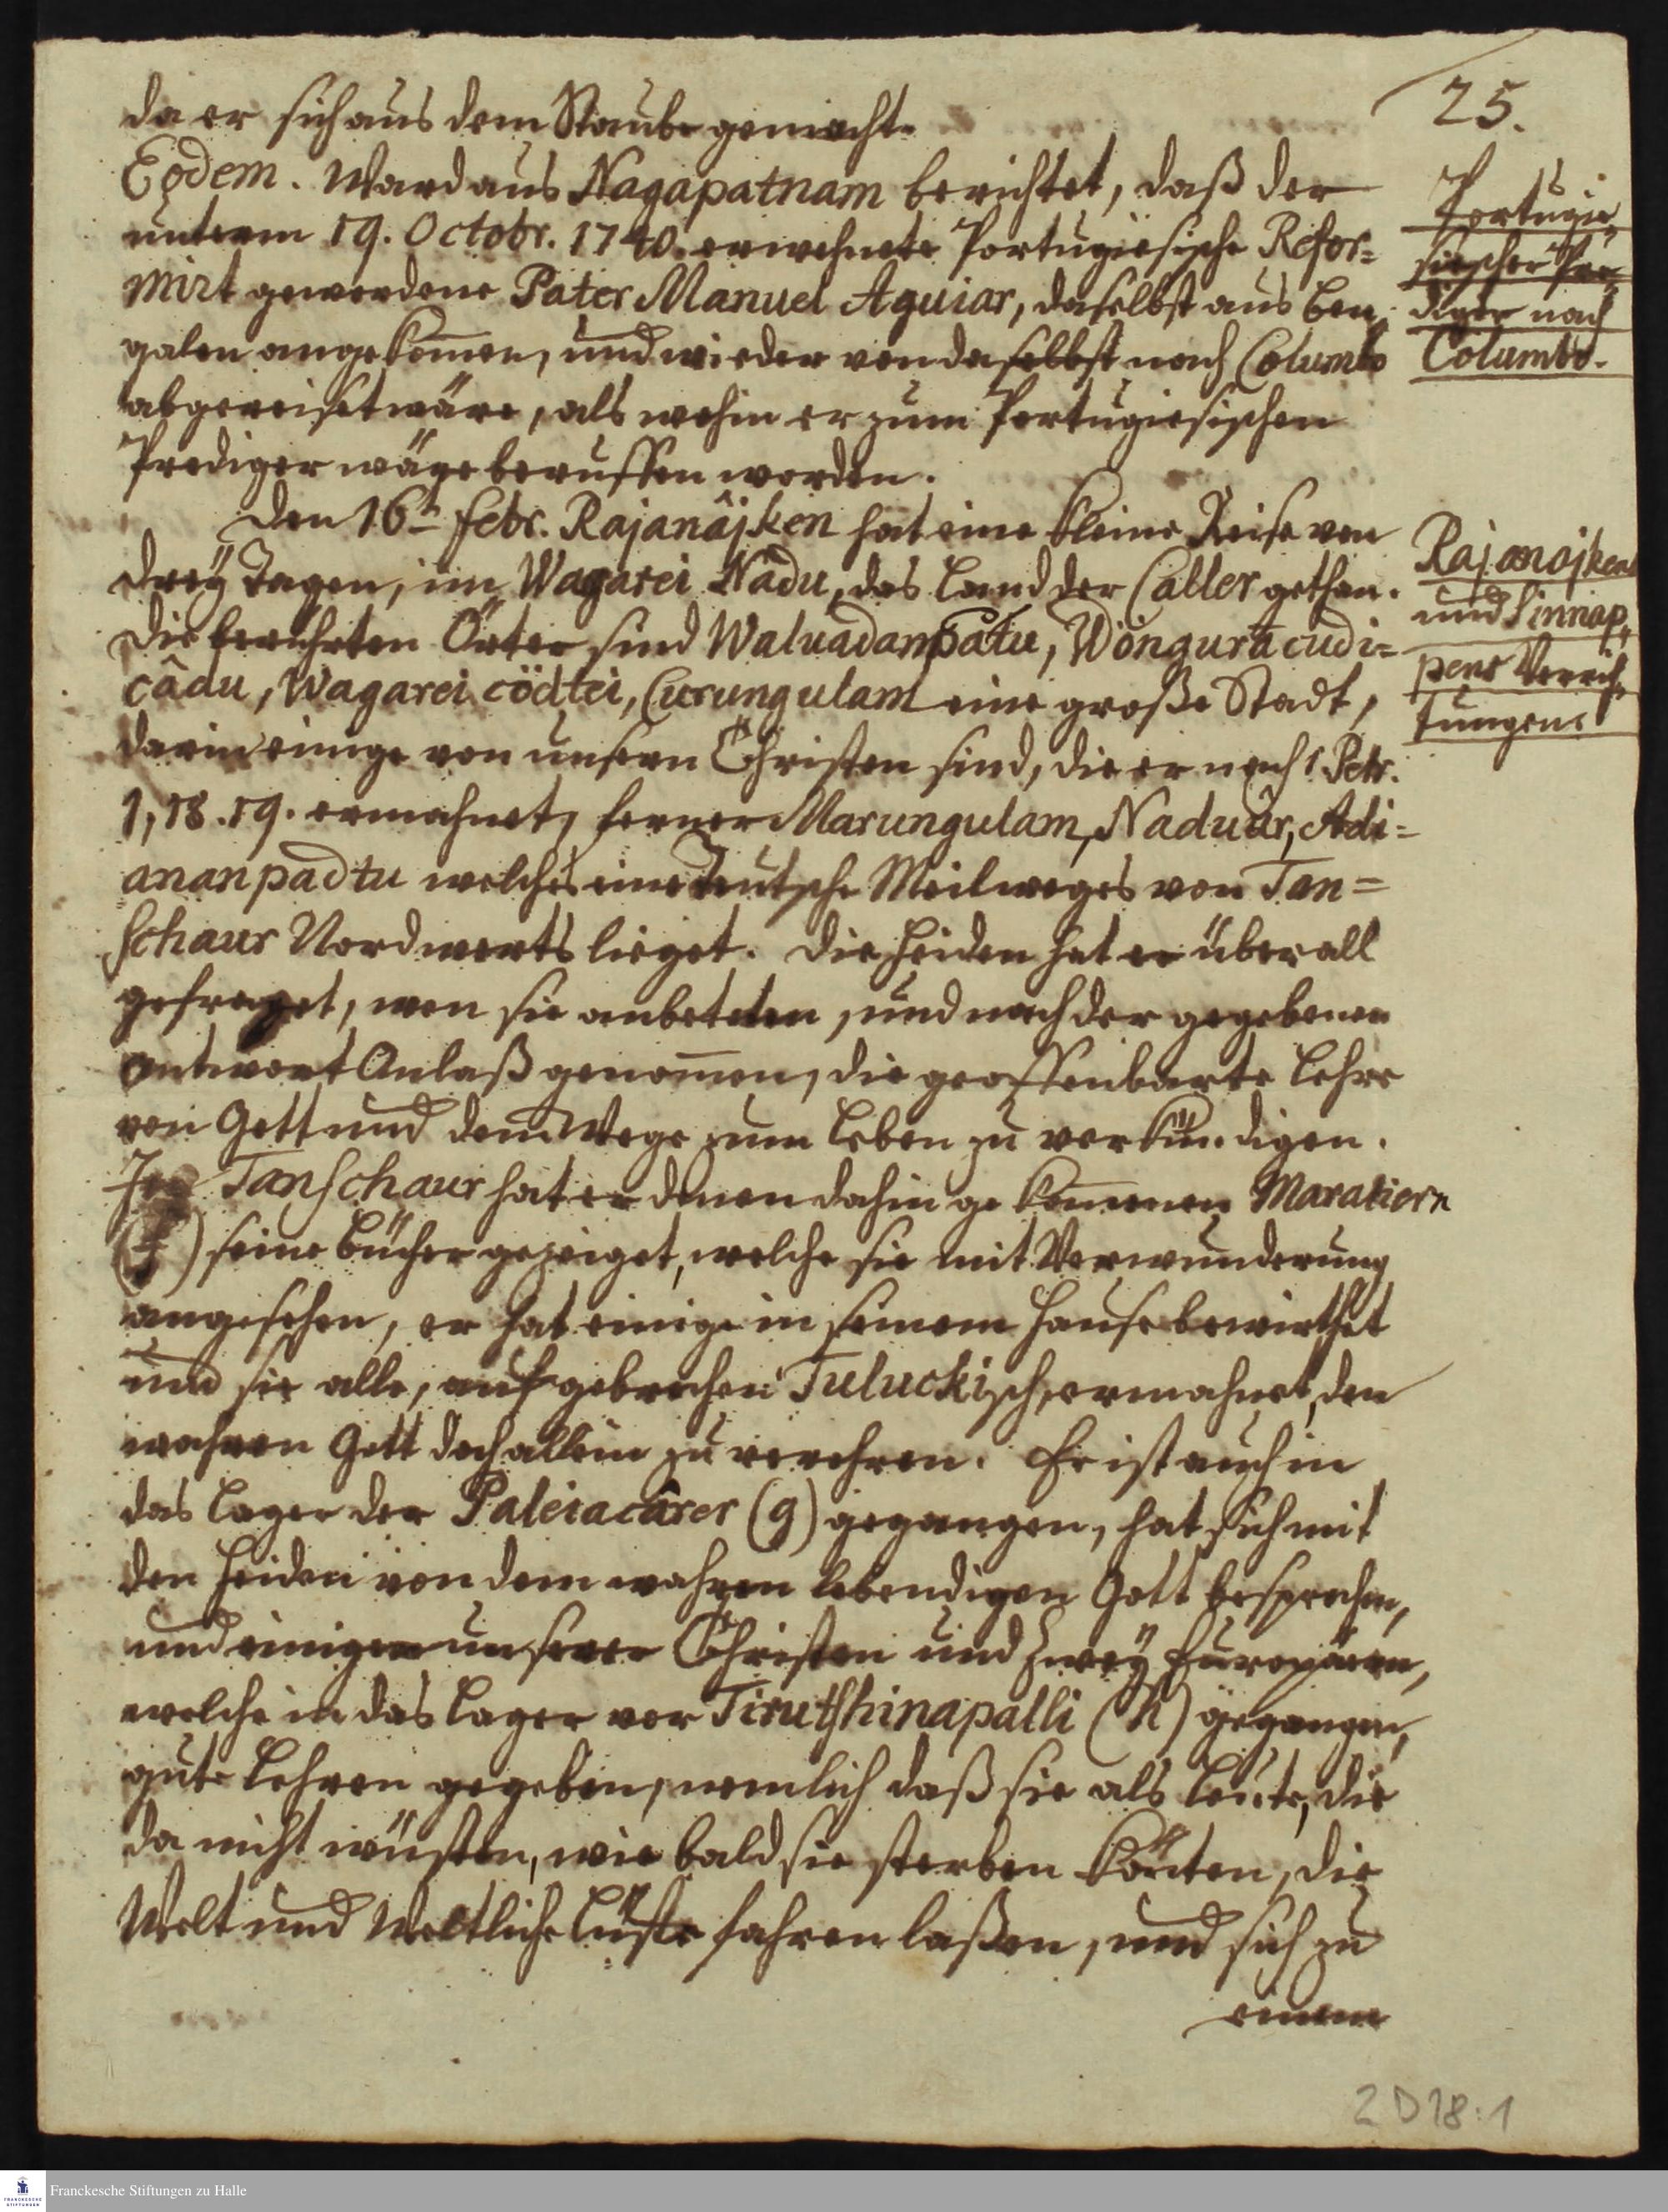 25.
da er sich aus dem Staube gemacht.
Eodem. Ward aus Nagapatnam berichtet, daß der
unterm 19. Octobr. 1740. erwehnete Portugiesische Refor=
mirt gewordene Pater Manuel Aguiar, daselbst aus Ben
galen angekom̄en, und wieder von daselbst nach Columbo
abgereiset wäre, als wohin er zum Portugiesischen
Prediger wäre beruffen worden.
Portugie„
sischer Pre„
diger nach
Columbo.
Den 16t. Febr. Rajanâjken hat eine kleine Reise von
drey Tagen, im Wagarei Nâdu, das Land der Caller gethan.
Die berührten Örter sind Waluadampatu, Wöngurâcudi=
câdu, Wagarei cödtei, Curungulam eine große Stadt,
darin einige von unsern Christen sind, die er nach 1 Petr.
1, 18. 19. ermahnet, ferner Marungulam, Naduûr, Adi=
ananpadtu welches eine teutsche Meilweges von Tan=
schaur Nordwerts lieget. Die Heiden hat er überall
gefraget, wen sie anbeteten, und nach der gegebenen
Antwort Anlaß genom̄en, die geoffenbarte Lehre
von Gott und dem Wege zum Leben zu verkündigen.
Rajanajkens
und Sinnap„
pens Verrich„
tungens
In Tanschaur hat er denen dahin gekom̄enen Maratiern
(f) seine Bücher gezeiget, welche sie mit Verwunderung
angesehen, er hat einige in seinem Hause bewirthet
und sie alle, auf gebrochen Tuluckisch, ermahnet, den
wahren Gott doch allein zu verehren. Er ist auch in
das Lager der Paleiacârer (g) gegangen, hat sich mit
den Heiden von dem wahren lebendigen Gott besprochen,
und einigen unserer Christen und zwey Europäern,
welche in das Lager vor Tirutshinapalli (h) gegangen,
gute Lehren gegeben, nemlich daß sie als Leute, die
da nicht wüsten, wie bald sie sterben könten, die
Welt und Weltliche Lüste fahren laßen, und sich zu
einem
2 D 18:1
Franckesche Stiftungen zu Halle
FRANCKESCHE
STIFTUNGEN